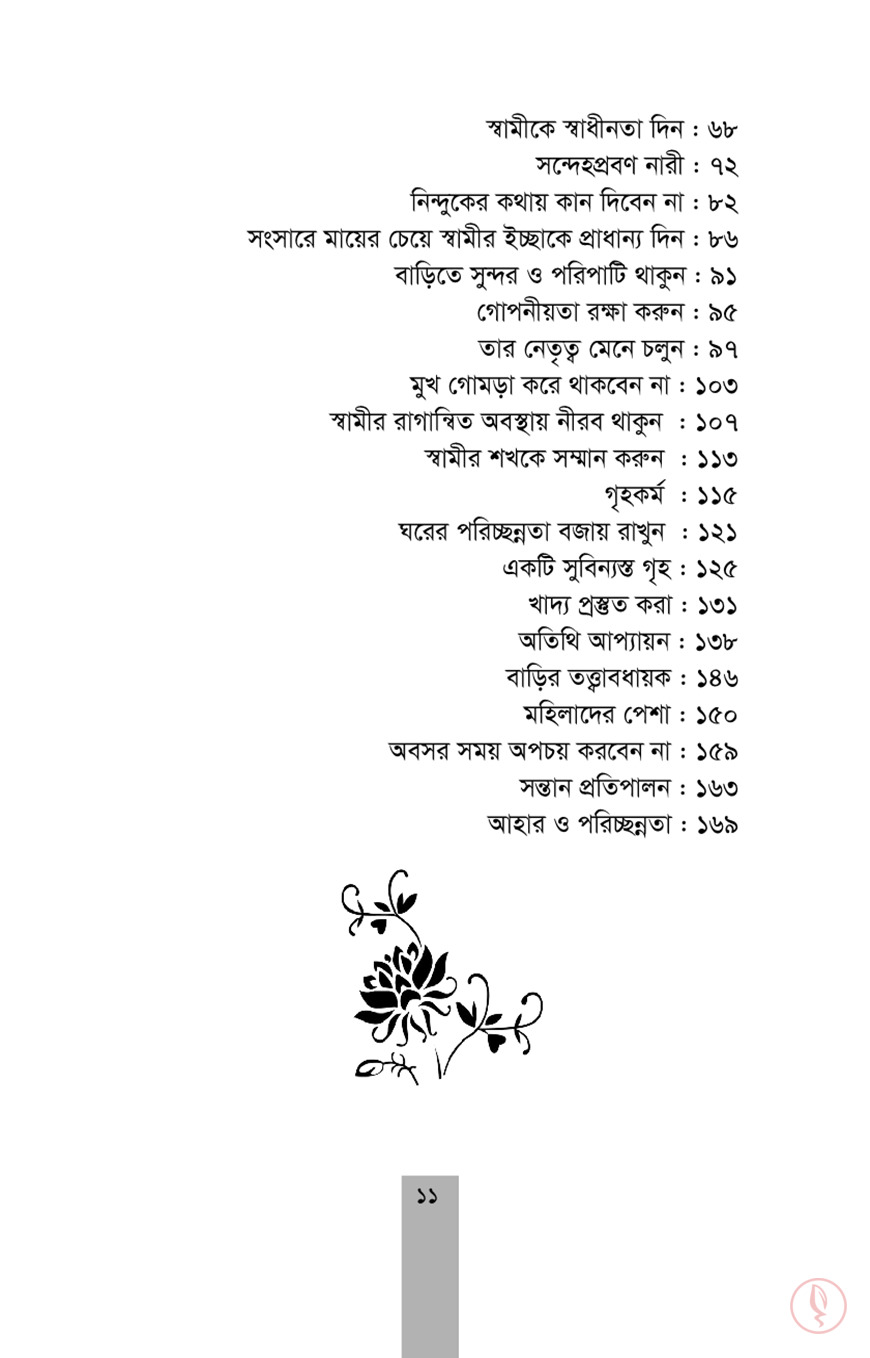 স্বামীকে স্বাধীনতা দিন : ৬৮
সন্দেহপ্রবণ নারী : ৭২
নিন্দুকের কথায় কান দিবেন না : ৮২
সংসারে মায়ের চেয়ে স্বামীর ইচ্ছাকে প্রাধান্য দিন : ৮৬
বাড়িতে সুন্দর ও পরিপাটি থাকুন : ৯১
গোপনীয়তা রক্ষা করুন : ৯৫
তার নেতৃত্ব মেনে চলুন : ৯৭
মুখ গোমড়া করে থাকবেন না : ১০৩
স্বামীর রাগান্বিত অবস্থায় নীরব থাকুন : ১০৭
স্বামীর শখকে সম্মান করুন : ১১৩
গৃহকর্ম : ১১৫
ঘরের পরিচ্ছন্নতা বজায় রাখুন : ১২১
একটি সুবিন্যস্ত গৃহ : ১২৫
খাদ্য প্রস্তুত করা : ১৩১
অতিথি আপ্যায়ন : ১৩৮
বাড়ির তত্ত্বাবধায়ক : ১৪৬
মহিলাদের পেশা : ১৫০
অবসর সময় অপচয় করবেন না : ১৫৯
সন্তান প্রতিপালন : ১৬৩
আহার ও পরিচ্ছন্নতা : ১৬৯
১১